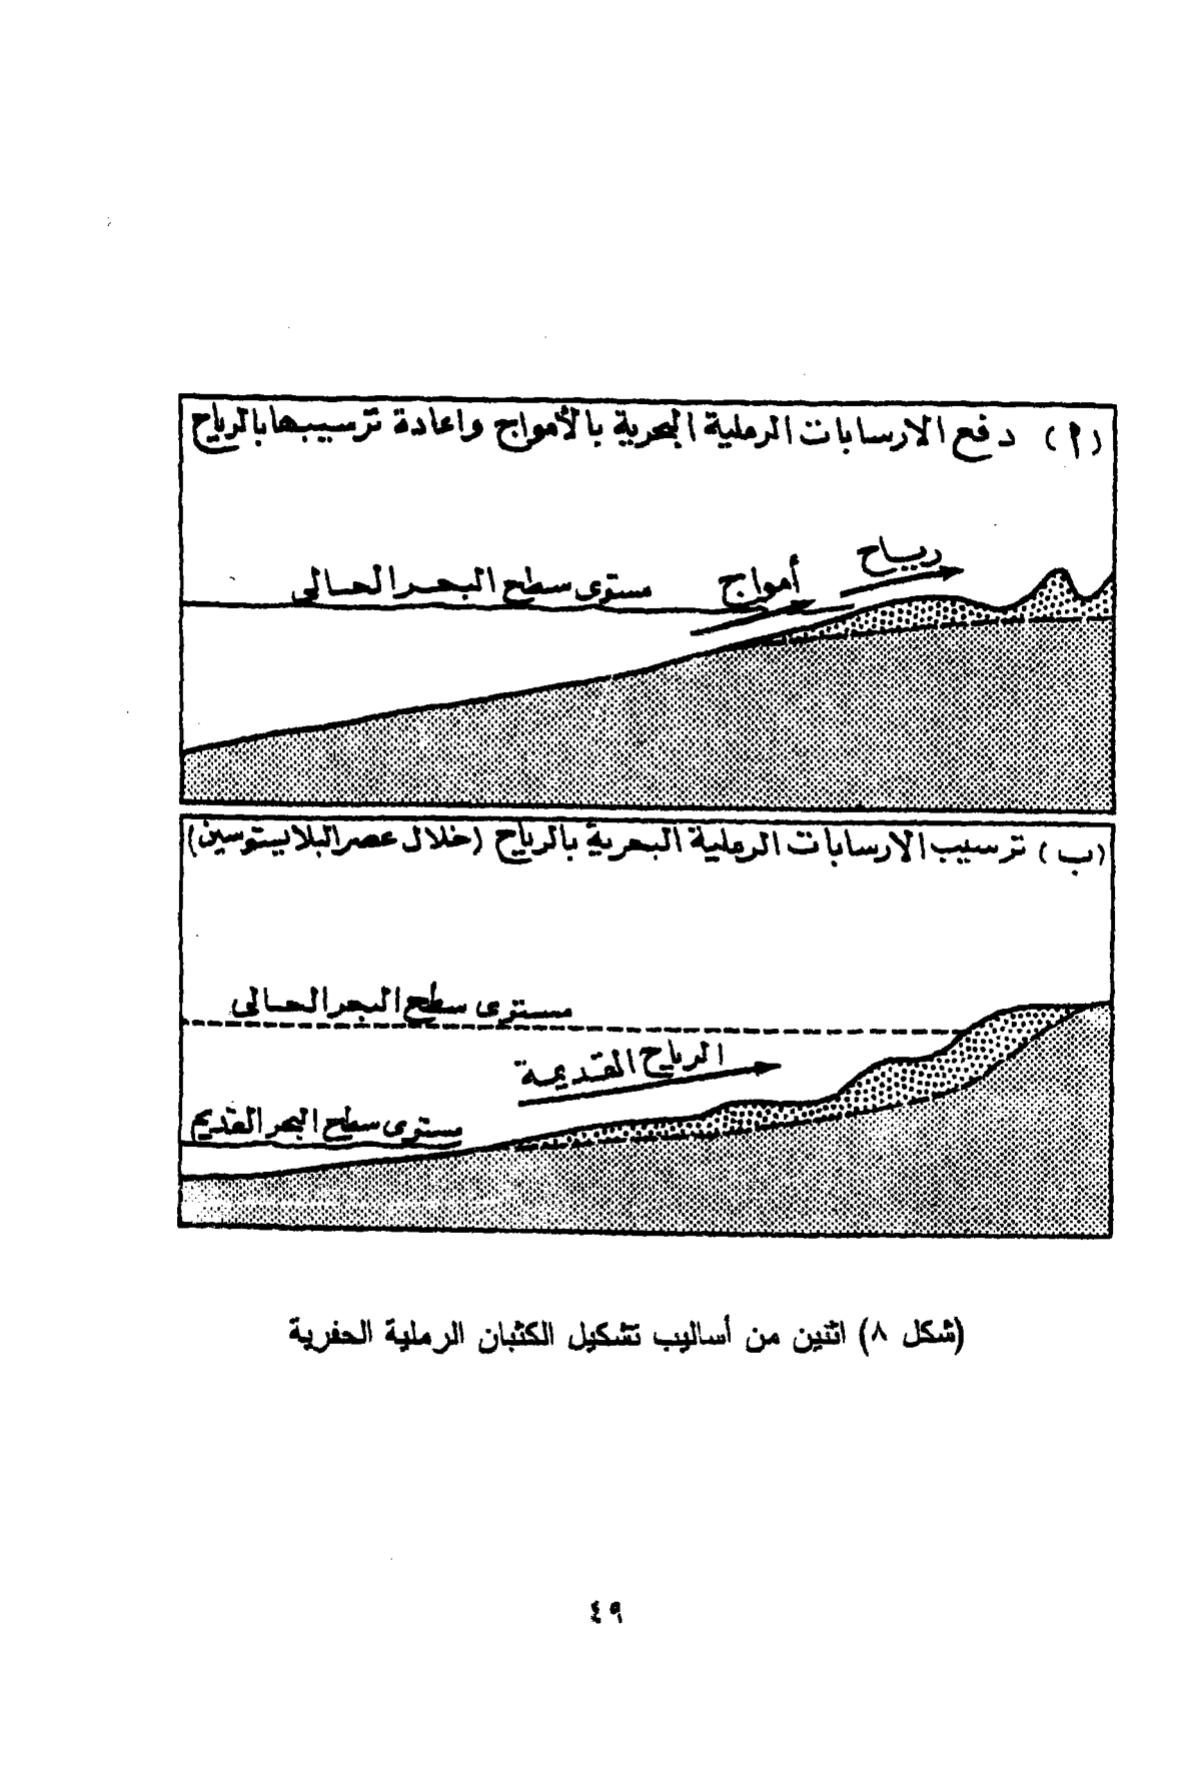 (أ) دفع الارسابات الرملية البحرية بالأمواج واعادة ترسيبها بالرياح
رياح
أمواج
مستوى سطح البحر الحالى
(ب) ترسيب الارسابات الرملية البحرية بالرياح (خلال عصر البلايستوسين)
مستوى سطح البحر الحالى
الرياح القديمة
مستوى سطح البحر القديم
(شكل ٨) اثنين من أساليب تشكيل الكثبان الرملية الحفرية
٤٩